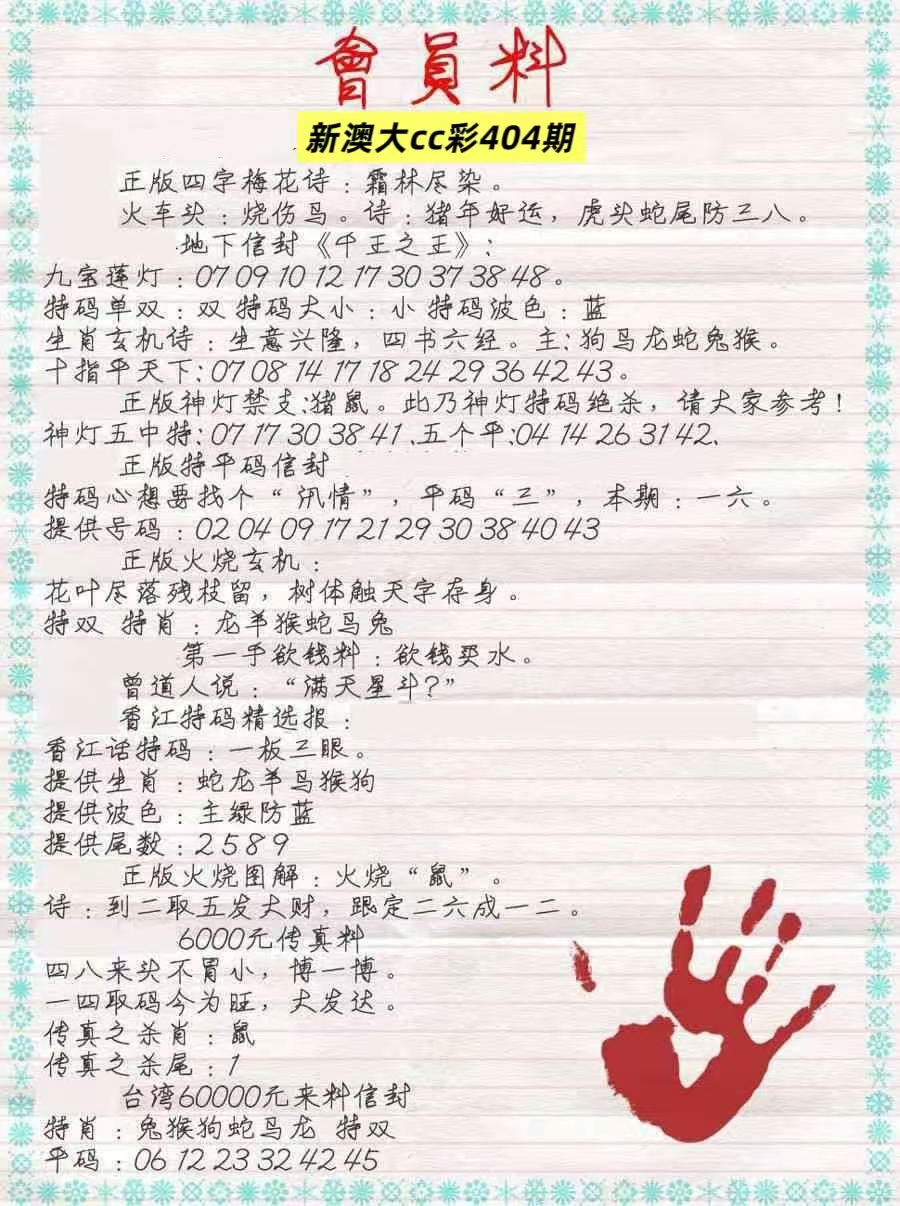 會員料
新澳大cc彩404期
正版四字梅花诗：霜林尽染。
火车头：烧伤鸟。诗：猪年好运，虎头蛇尾防三八。
地下信封《千王之王》：
九宝莲灯：07 09 10 12 17 30 37 38 48。
特码单双：双 特码大小：小 特码波色：蓝
生肖玄机诗：生意兴隆，四书六经。主：狗马龙蛇兔猴。
十指平天下：07 08 14 17 18 24 29 36 42 43。
正版神灯禁支：猪鼠。此乃神灯特码绝杀，请大家参考！
神灯五中特：07 17 30 38 41 .五个平：04 14 26 31 42、
正版特平码信封
特码心想要找个“汛情”，平码“三”，本期：一六。
提供号码：02 04 09 17 21 29 30 38 40 43
正版火烧玄机：
花叶尽落残枝留，树体触天字存身。
特双 特肖：龙羊猴蛇马兔
第一手欲钱料：欲钱买水。
曾道人说：“满天星斗？”
香江特码精选报：
香江话特码：一板三眼。
提供生肖：蛇龙羊马猴狗
提供波色：主绿防蓝
提供尾数：2 5 8 9
正版火烧图解：火烧“鼠”。
诗：到二取五发大财，跟定二六成一二。
6000元传真料
四八来头不冒小，博一博。
一四取码今为旺，大发达。
传真之杀肖：鼠
传真之杀尾：1
台湾60000元来料信封
特肖：兔猴狗蛇马龙 特双
平码：06 12 23 32 42 45